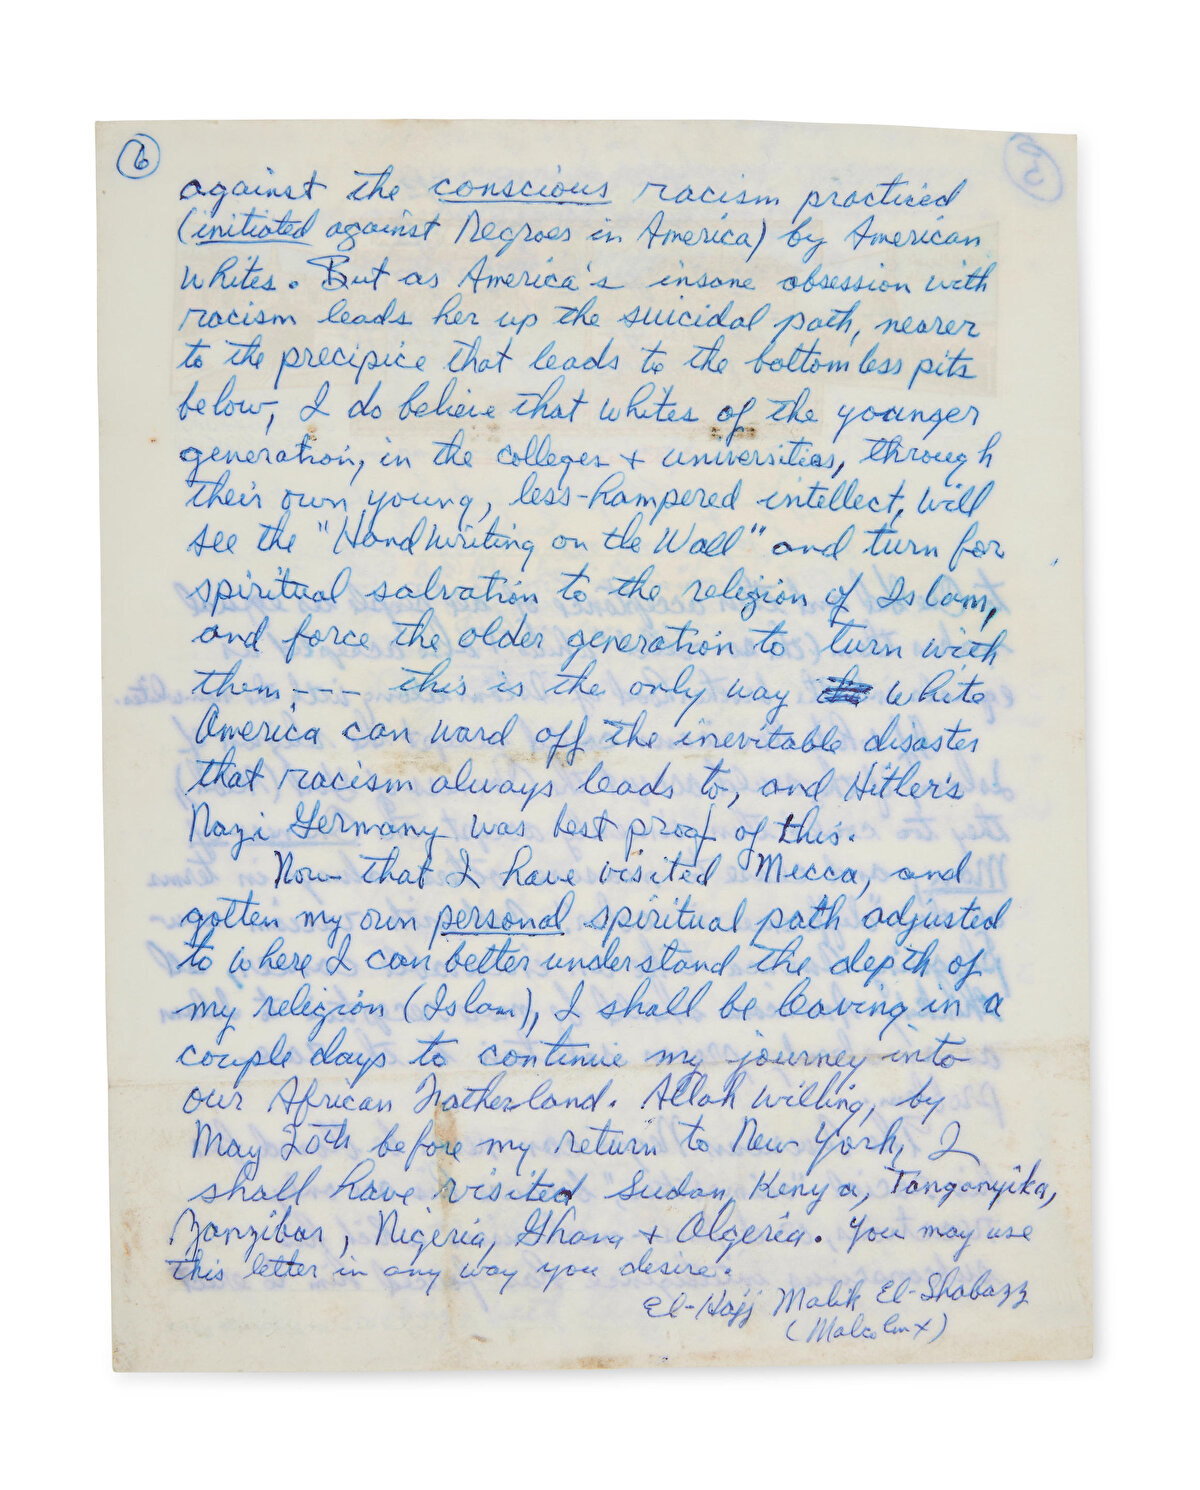 6
against the conscious racism practiced
(initiated against Negroes in America) by American
whites. But as America's insane obsession with
racism leads her up the suicidal path, nearer
to the precipice that leads to the bottomless pits
below, I do believe that whites of the younger
generation, in the colleges + universities, through
their own young, less-hampered intellect, will
see the "Handwriting on the Wall" and turn for
spiritual salvation to the religion of Islam,
and force the older generation to turn with
them --- this is the only way white
America can ward off the inevitable disaster
that racism always leads to, and Hitler's
Nazi Germany was best proof of this.
Now that I have visited Mecca, and
gotten my own personal spiritual path adjusted
to where I can better understand the depth of
my religion (Islam), I shall be leaving in a
couple days to continue my journey into
our African Fatherland. Allah willing, by
May 20th before my return to New York, I
shall have visited Sudan, Kenya, Tanganyika,
Zanzibar, Nigeria, Ghana + Algeria. You may use
this letter in any way you desire.
El-Hajj Malik El-Shabazz
(Malcolm X)